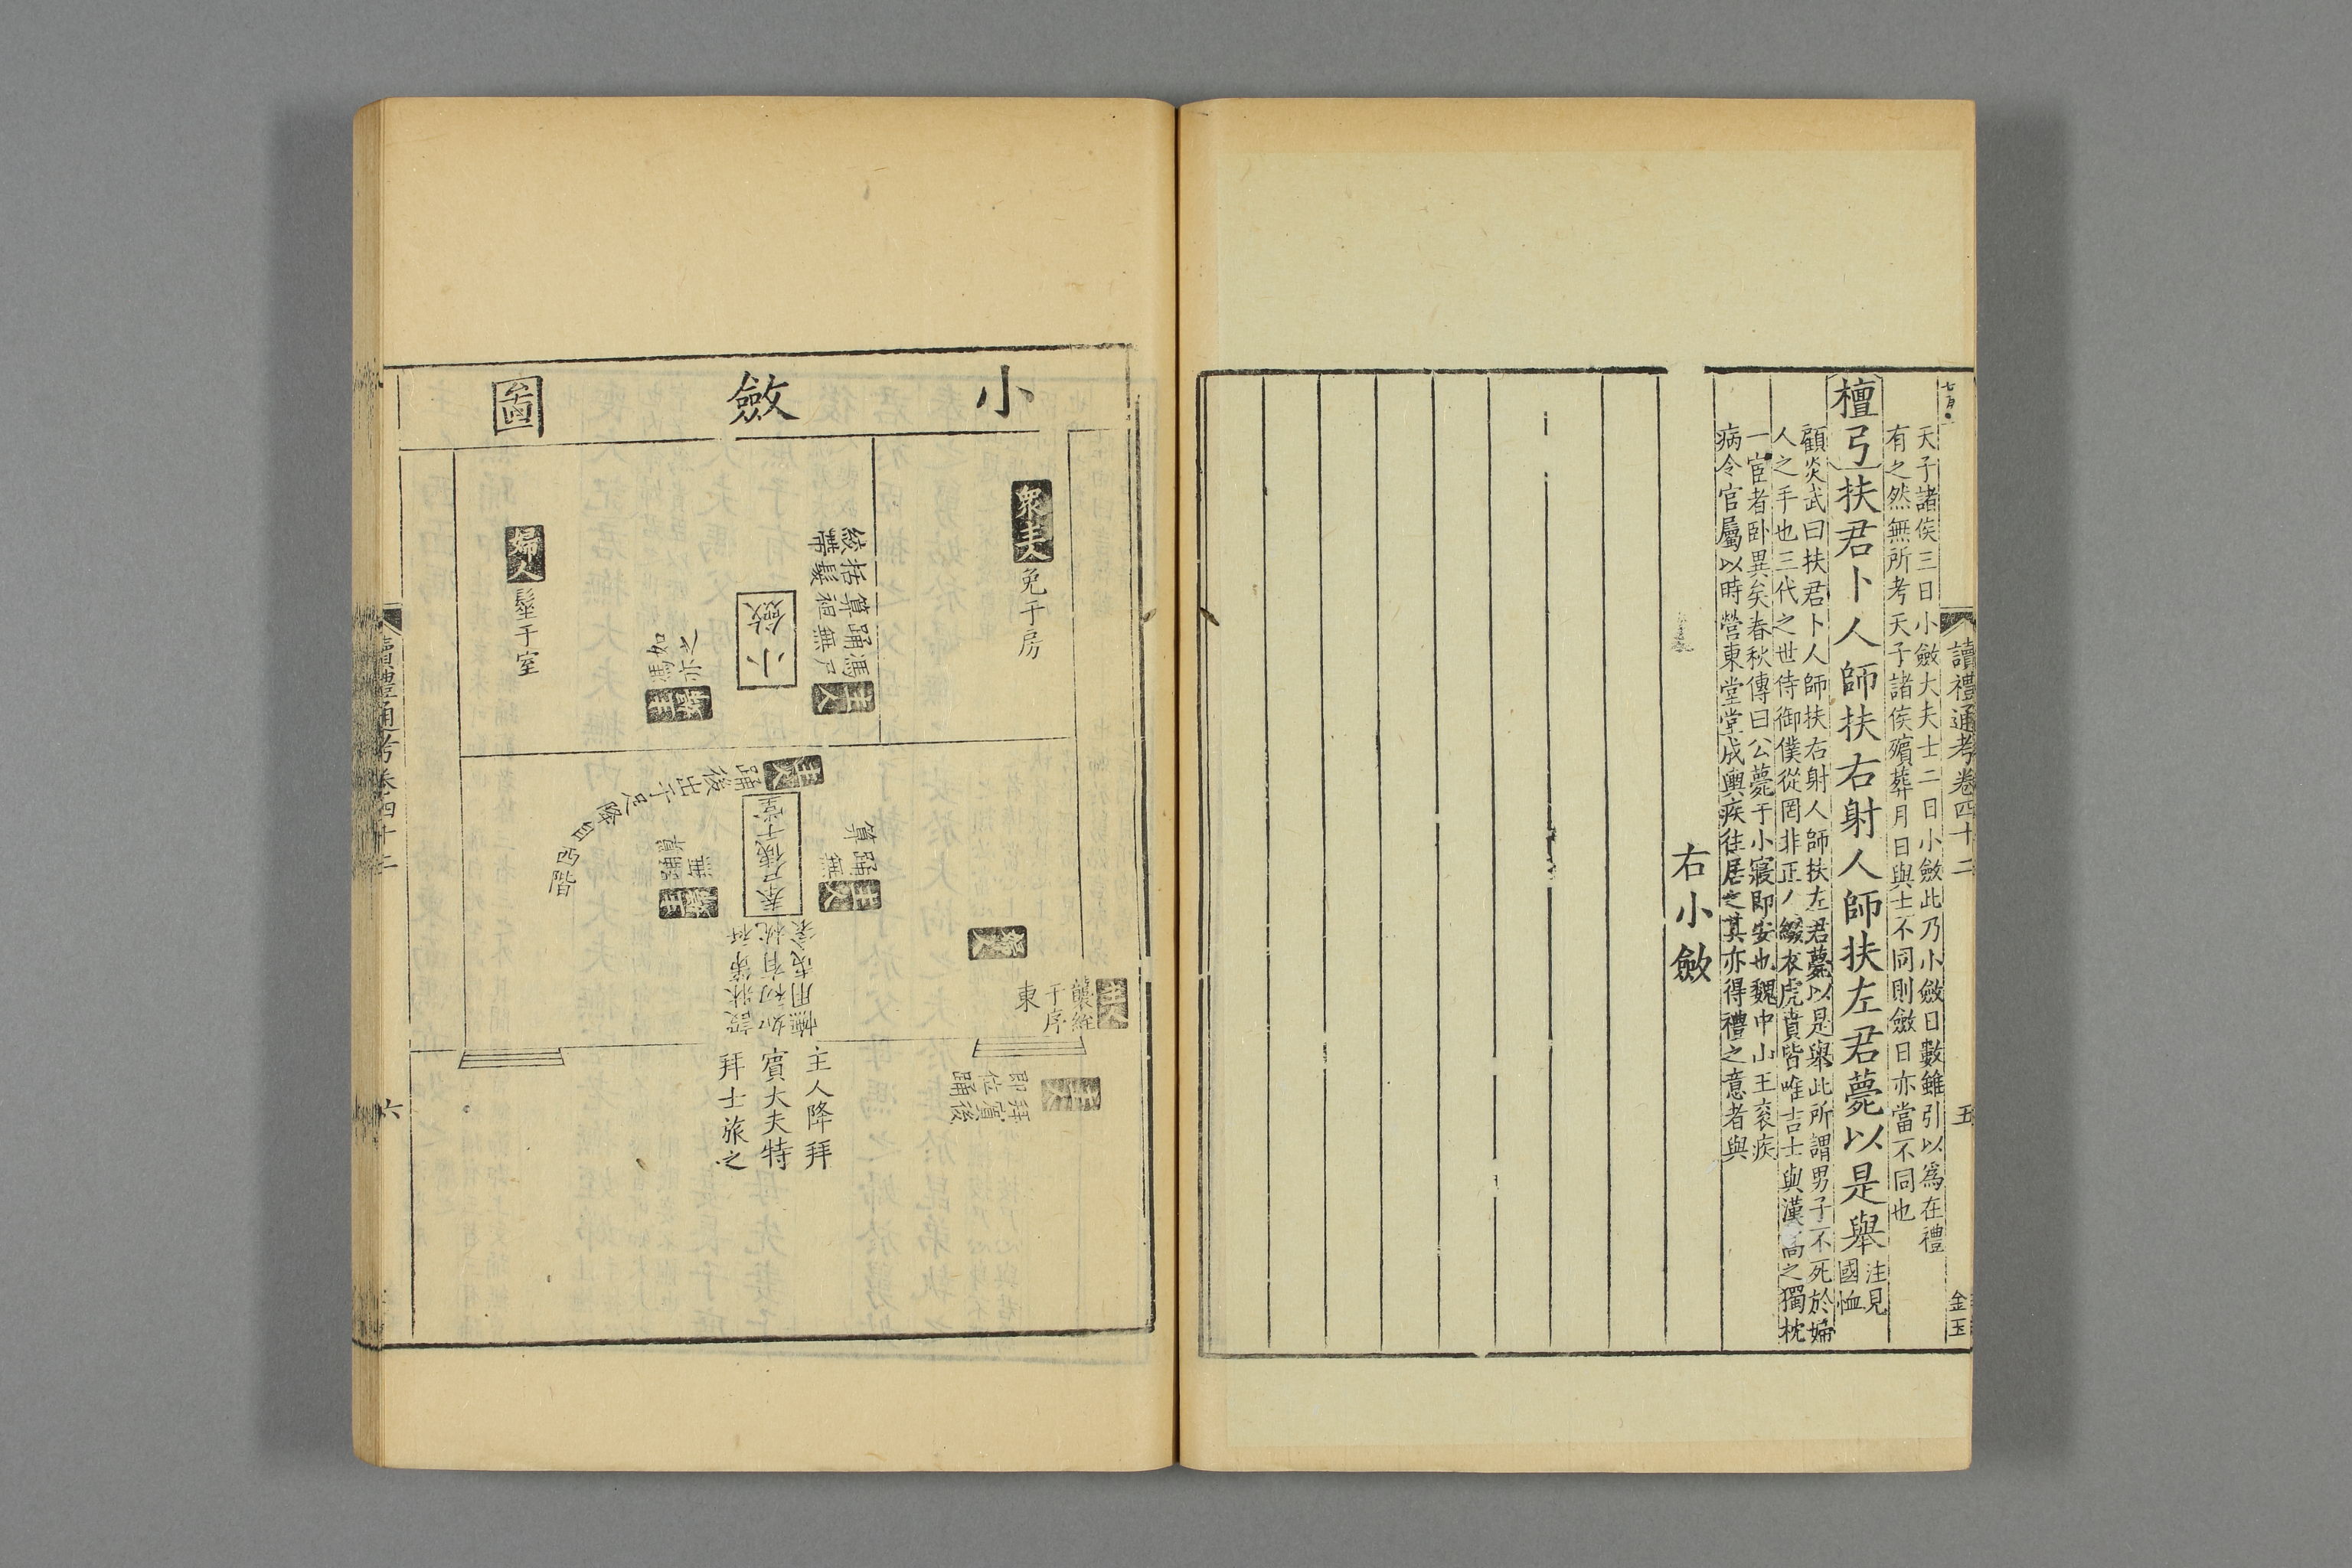 讀禮通考卷四十二
五
金玉
天子諸侯三日小斂大夫士二日小斂此乃小斂日數雖引以爲在禮
有之然無所考天子諸侯殯葬月日與士不同則斂日亦當不同也
檀弓扶君卜人師扶右射人師扶左君薨以是舉
注見
國恤
顧炎武曰扶君卜人師扶右射人師扶左君薨以是舉此所謂男子不死於婦
人之手也三代之世侍御僕從罔非正人綴衣虎賁皆唯吉士與漢高之獨枕
一宦者卧異矣春秋傳曰公薨于小寢即安也魏中山王衮疾
病令官屬以時營東堂堂成輿疾往居之其亦得禮之意者與
右小斂
小斂圖
衆主人免于房
婦人髽于室
主人馮尸踊無算括髮袒絞帶
小斂
主婦馮亦如之
主人踊後出于足降自西階
奉尸侇于堂
主人踊無算
主婦踊無算
設牀第衽
如初有枕
幠用夷衾
衆主人
主人襲絰于序東
主人拜賓後即位踊
主人降拜
賓大夫特
拜士旅之
讀禮通考卷四十二
六